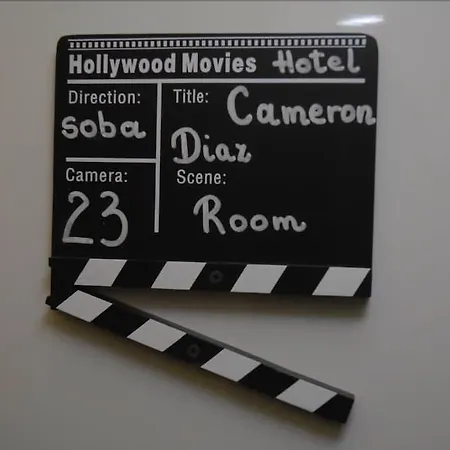 Hollywood Movies Hotel
Direction:
soba
Title: Cameron
Diaz
Camera:
23
Scene:
Room